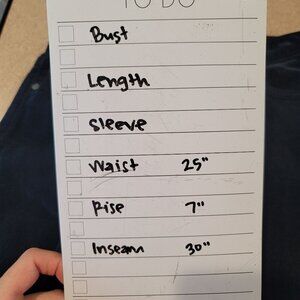 TO DO
Bust
Length
Sleeve
Waist 25"
Rise 7"
Inseam 30"